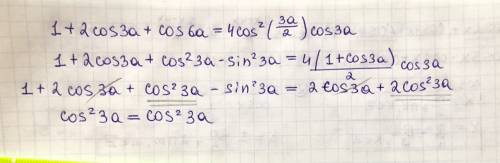 1 + 2cos3a + cos6a = 4cos²(3a/2)cos3a
1 + 2cos3a + cos²3a - sin²3a = 4(1+cos3a)/2 cos3a
1 + 2cos3a + cos²3a - sin²3a = 2cos3a + 2cos²3a
cos²3a = cos²3a